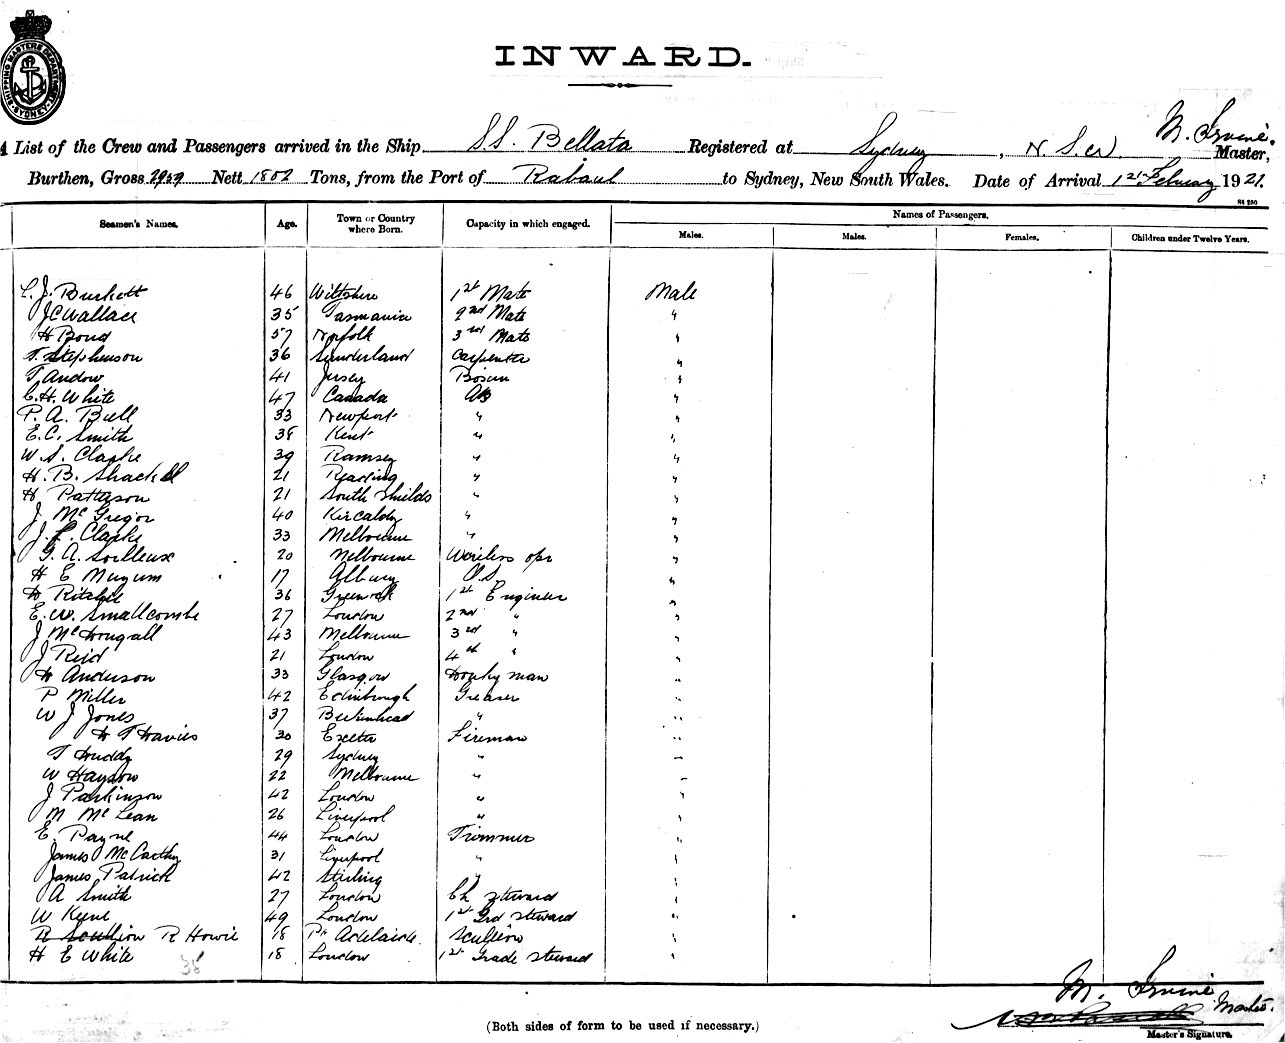 SHIPPING MASTERS DEPARTMENT SYDNEY
INWARD.
List of the Crew and Passengers arrived in the Ship S.S. Bellata Registered at Sydney, N.S.W. M. Irvine. Master,
Burthen, Gross Nett 1802 Tons, from the Port of Rabaul to Sydney, New South Wales. Date of Arrival 1st February 1921.
St 250
Seamen's Names. Age. Town or Country where Born. Capacity in which engaged. Names of Passengers.
Males. Males. Females. Children under Twelve Years.
J. Burkett 46 Wiltshire 1st Mate Male
J C Wallace 35 Tasmania 2nd Mate "
H Bond 57 Norfolk 3rd Mate "
T. Stephenson 36 Sunderland Carpenter "
T Andow 41 Jersey Bosun "
C. H. White 47 Canada AB "
P. A. Bull 33 Newport " "
E. C. Smith 38 Kent " "
W. S. Clarke 39 Ramsey " "
H. B. Shackell 21 Reading " "
H Patterson 21 South Shields " "
J McGregor 40 Kircaldy " "
J. F. Clarke 33 Melbourne " "
G. A. Soilleux 20 Melbourne Wireless opr "
H E Mugum 17 Albury O.S. "
D Ritchie 36 Greenock 1st Engineer "
E. W. Smallcombe 27 London 2nd " "
J McDougall 43 Melbourne 3rd " "
J Reid 21 London 4th " "
D Anderson 33 Glasgow Donkyman "
P Miller 42 Edinburgh Greaser "
W J Jones 37 Birkenhead " "
D T Davies 30 Exeter Fireman "
T Duddy 29 Sydney " "
W Haysow 22 Melbourne " "
J Parkinson 42 London " "
M McLean 26 Liverpool " "
E. Payne 44 London Trimmer "
James McCarthy 31 Liverpool " "
James Patrick 42 Stirling " "
A Smith 27 London Ch steward "
W Keene 49 London 1st Grd steward "
R Scullion R Howie 18 Pt Adelaide. Scullion "
H E White 18 London 1st Grade steward "
38
M. Irvine Master.
Master's Signature.
(Both sides of form to be used if necessary.)